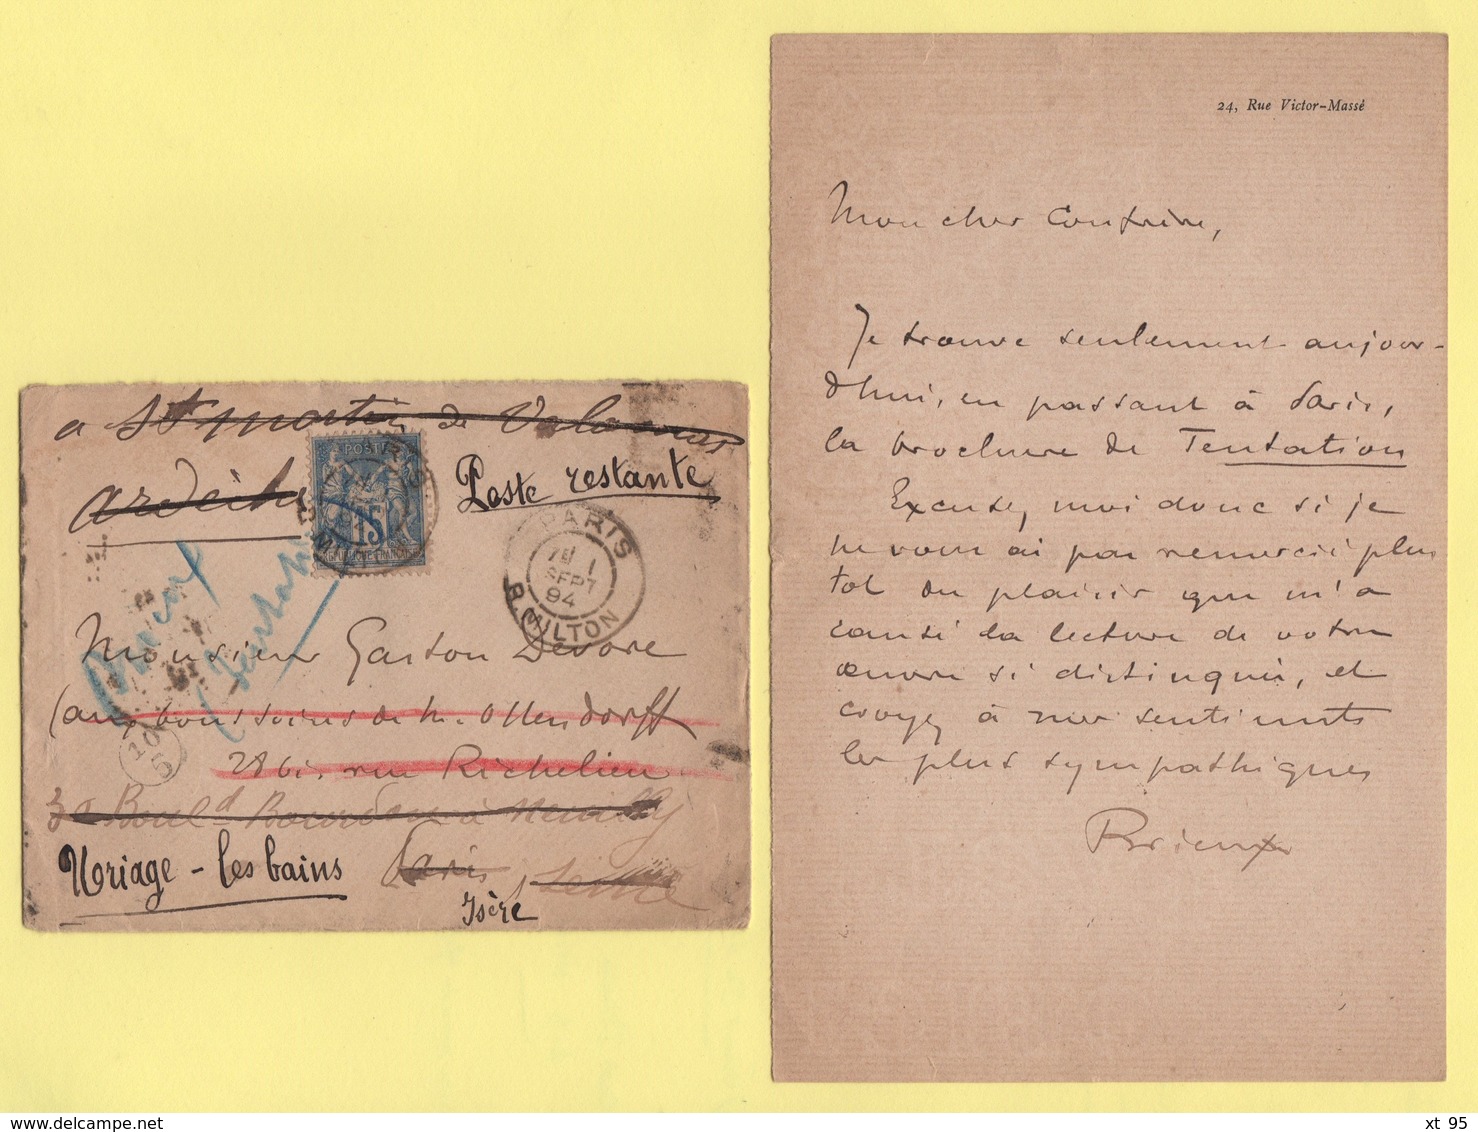 a St martin de Valamas
ardèche
Poste restante
POSTE
15
REPUBLIQUE FRANCAISE
PARIS
7E 1
SEPT
94
R. MILTON
Monsieur Gaston Devore
(aux bons soins de M. Ollendorff
28 bis, rue Richelieu
30 Bould Bourdon à Neuilly
Paris Seine
Uriage - les bains
Isère
24, Rue Victor-Massé
Mon cher Confrère,
Je trouve seulement aujour-
d'hui, en passant à Paris,
la brochure de Tentation
Excusez moi donc si je
ne vous ai pas remercié plus
tot du plaisir que m'a
causé la lecture de votre
œuvre si distinguée, et
croyez à mes sentiments
les plus sympathiques
Brieux
xt 95